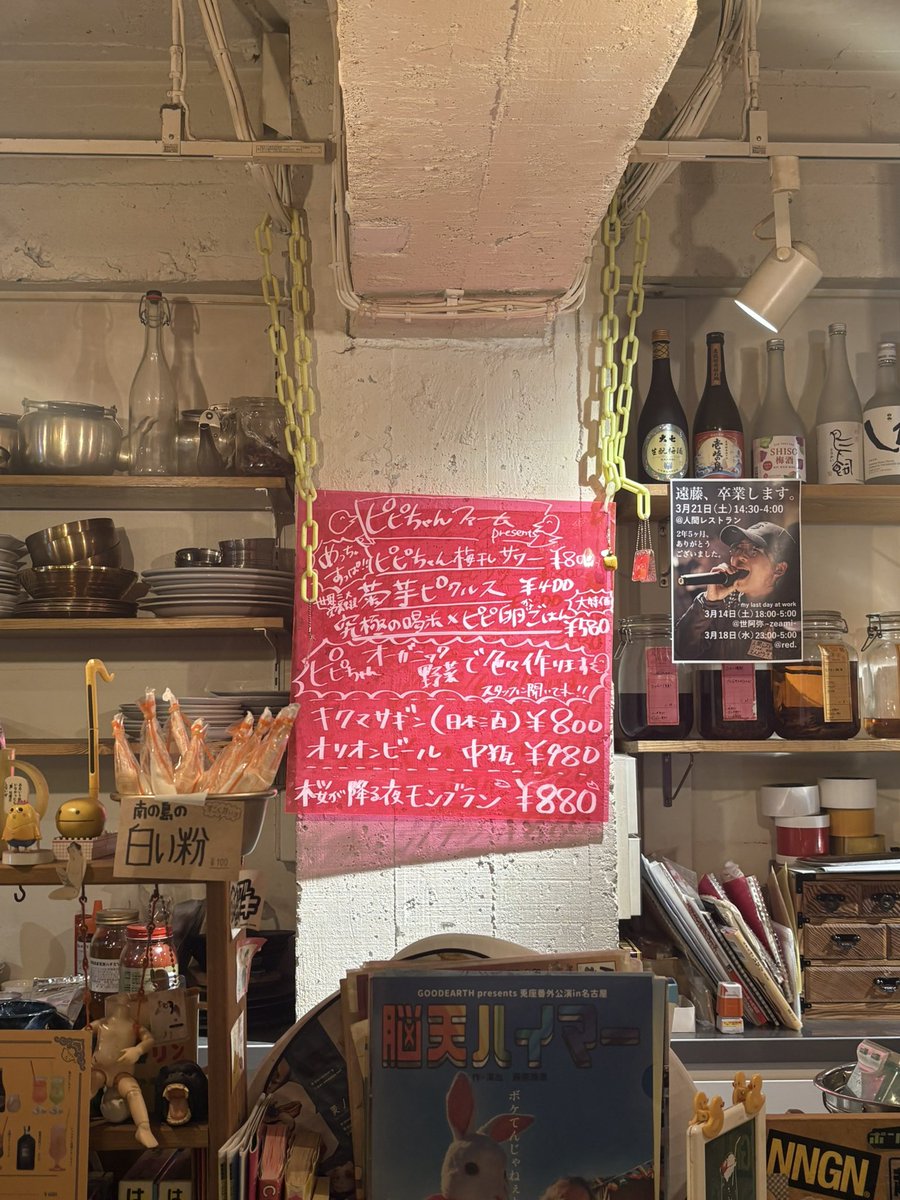 ピピちゃんファーム
presents
めっちゃ
すっぱ!!
ピピちゃん梅干しサワー ¥800
世界三大
蕎芽ピクルス ¥400
究極の喝法×ピピ卵ごはん
大特価
¥580
ピピちゃん
オーガニック
野菜
で色々作ります
スタッフに聞いてネ!!
キクマサギン(日本酒)¥800
オリオンビール 中瓶 ¥980
桜が降る夜モンブラン ¥880
遠藤、卒業します。
3月21日(土)14:30-4:00
@人間レストラン
2年5ヶ月、
ありがとう
ございました。
my last day at work
3月14日(土)18:00-5:00
@世阿弥-zeami-
3月18日(水)23:00-5:00
@red.
大七
生酛梅酒
壱岐の島
SHISO
梅酒
南の島の
白い粉
¥100
GOODEARTH presents 兎座番外公演in名古屋
脳天ハイマー
ボケてんじゃねぇ
NNGN